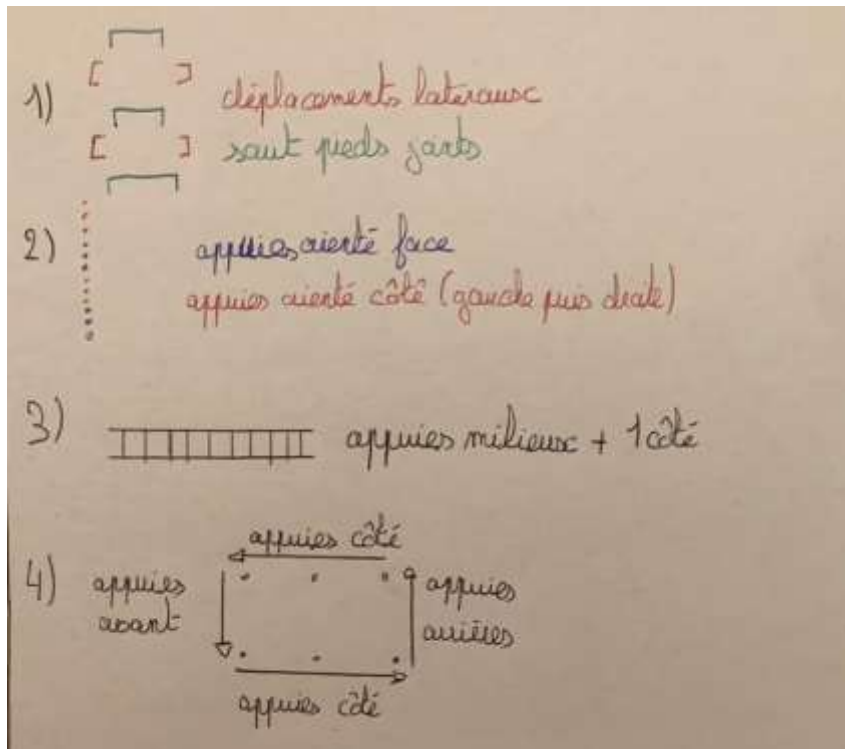 1)
déplacements lateraux
saut pieds joints
2)
appuies orienté face
appuies orienté côté (gauche puis droite)
3)
appuies milieux + 1 côté
4)
appuies côté
appuies
avant
appuies
arrières
appuies côté